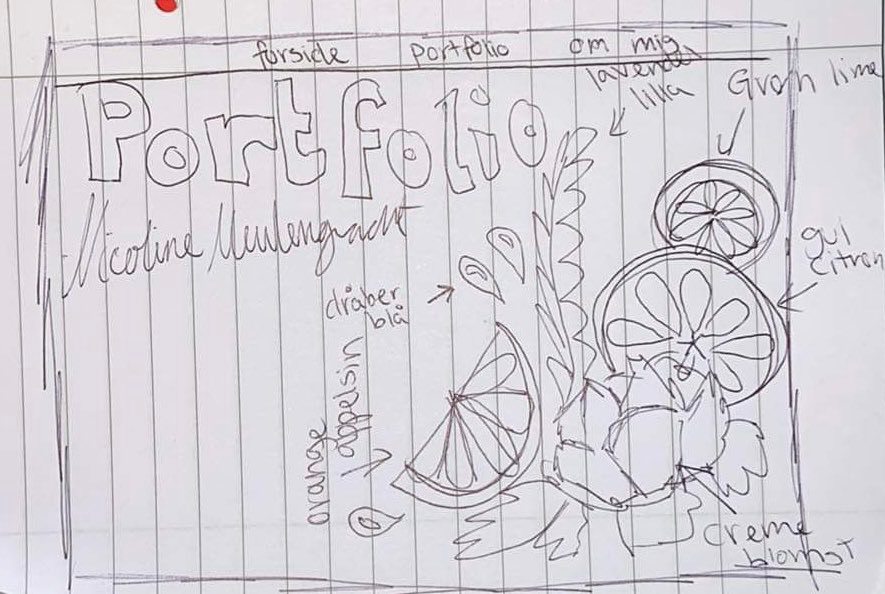 forside portfolio om mig
Portfolio
Nicoline Meulengracht
lavendel
lilla
Grøn lime
gul
citron
dråber
blå
orange
appelsin
creme
blomst